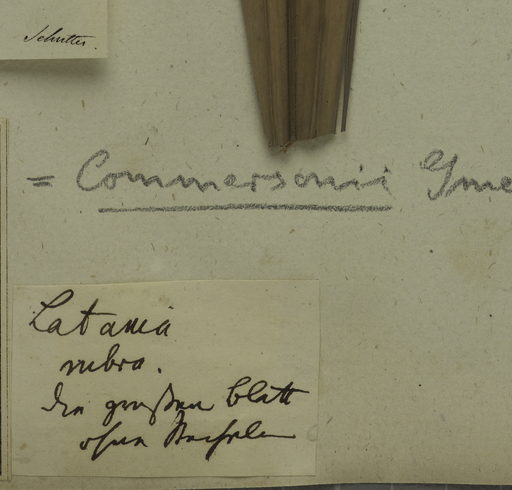 Schutter.
= Commersonii Gme
Latania
rubra.
die großen Blatt
ohne Stacheln